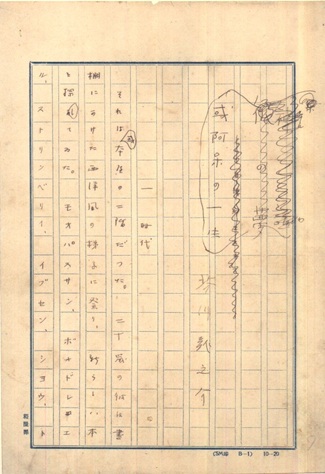 或阿呆の一生
芥川龍之介
一 時代
それは或本屋の二階だつた。二十歳の彼は書
棚にかけた西洋風の梯子に登り、新らしい本
を探してゐた。モオパスサン、ボオドレエ
ル、ストリントベリイ、イブセン、シヨウ、ト
(SM印 B-1) 10-20